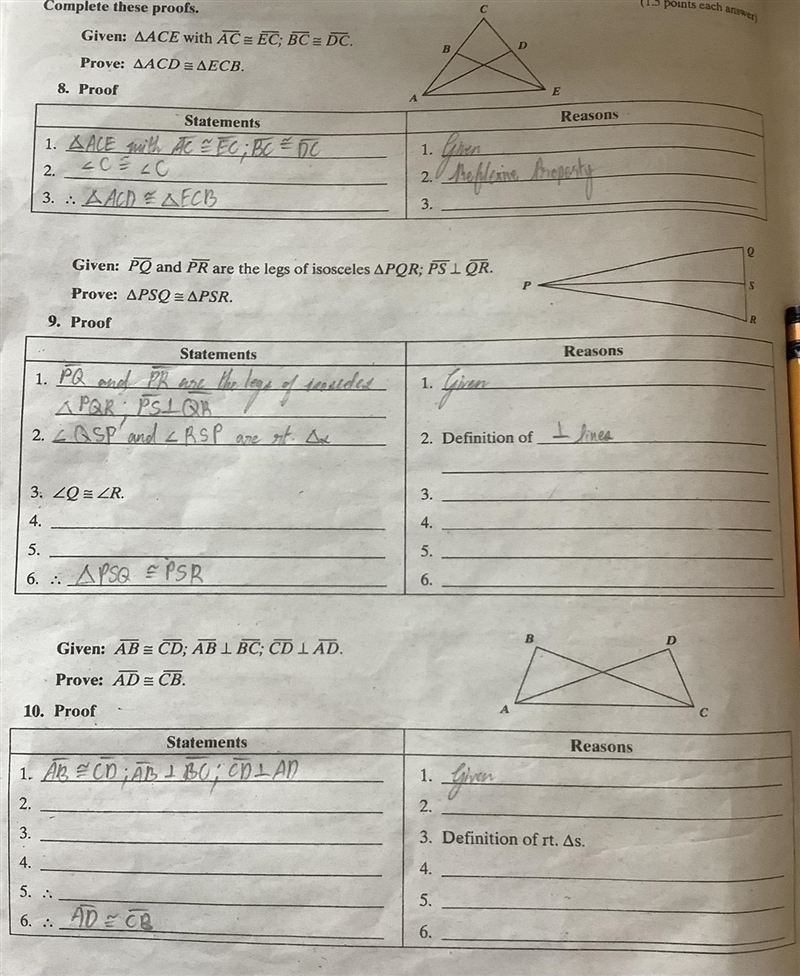 Complete these proofs.
(1.5 points each answer)
Given: ΔACE with AC ≅ EC; BC ≅ DC.
Prove: ΔACD ≅ ΔECB.
8. Proof
C
B
D
A
E
Statements
Reasons
1. ΔACE with AC ≅ EC; BC ≅ DC
1. Given
2. ∠C ≅ ∠C
2. Reflexive Property
3. ∴ ΔACD ≅ ΔECB
3.
Given: PQ and PR are the legs of isosceles ΔPQR; PS ⊥ QR.
Prove: ΔPSQ ≅ ΔPSR.
9. Proof
Q
P
S
R
Statements
Reasons
1. PQ and PR are the legs of isosceles
ΔPQR; PS ⊥ QR
1. Given
2. ∠QSP and ∠RSP are rt.
2. Definition of ⊥ lines
3. ∠Q ≅ ∠R.
3.
4.
4.
5.
5.
6. ∴ ΔPSQ ≅ PSR
6.
Given: AB ≅ CD; AB ⊥ BC; CD ⊥ AD.
Prove: AD ≅ CB.
10. Proof
B
D
A
C
Statements
Reasons
1. AB ≅ CD; AB ⊥ BC; CD ⊥ AD
1. Given
2.
2.
3.
3. Definition of rt. Δs.
4.
4.
5. ∴
5.
6. ∴ AD ≅ CB
6.